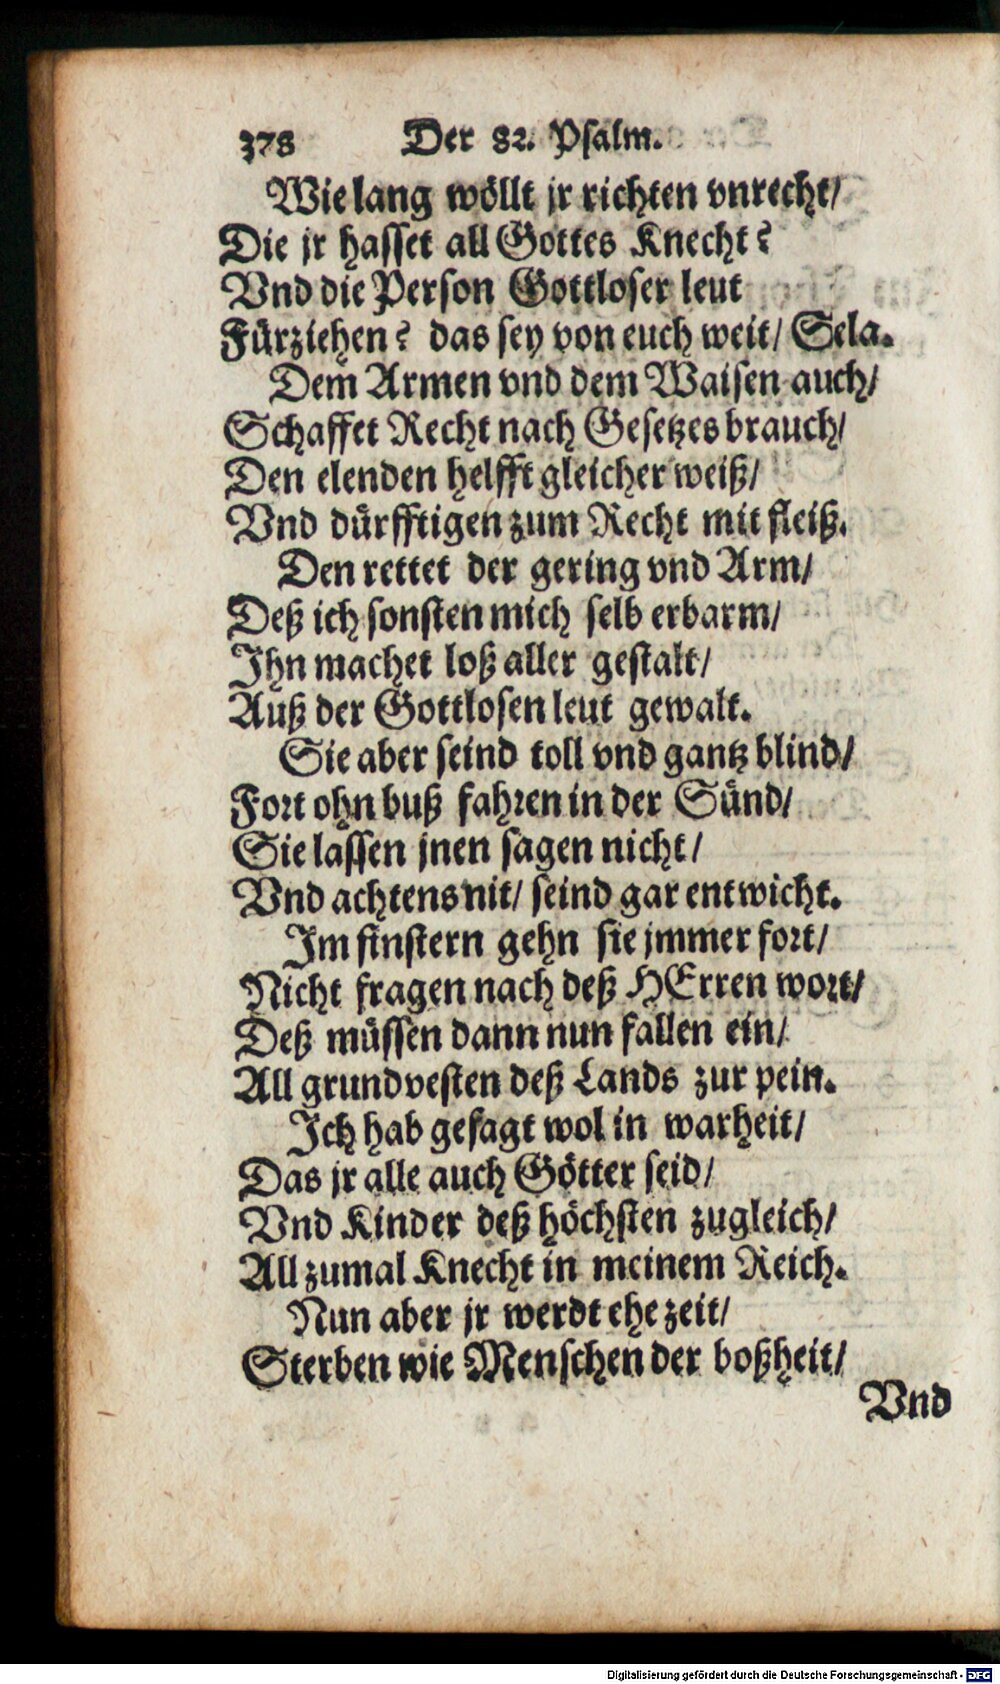 378 Der 82. Psalm.
Wie lang wöllt jr richten vnrecht/
Die jr hasset all Gottes Knecht?
Vnd die Person Gottloser leut
Fürziehen? das sey von euch weit/ Sela.
Dem Armen vnd dem Waisen auch/
Schaffet Recht nach Gesetzes brauch/
Den elenden helfft gleicher weiß/
Vnd dürfftigen zum Recht mit fleiß.
Den rettet der gering vnd Arm/
Deß ich sonsten mich selb erbarm/
Ihn machet loß aller gestalt/
Auß der Gottlosen leut gewalt.
Sie aber seind toll vnd gantz blind/
Fort ohn buß fahren in der Sünd/
Sie lassen jnen sagen nicht/
Vnd achtens nit/ seind gar entwicht.
Im finstern gehn sie jmmer fort/
Nicht fragen nach deß HErren wort/
Deß müssen dann nun fallen ein/
All grundvesten deß Lands zur pein.
Ich hab gesagt wol in warheit/
Das jr alle auch Götter seid/
Vnd Kinder deß höchsten zugleich/
All zumal Knecht in meinem Reich.
Nun aber jr werdt ehe zeit/
Sterben wie Menschen der boßheit/
Vnd
Digitalisierung gefördert durch die Deutsche Forschungsgemeinschaft - DFG